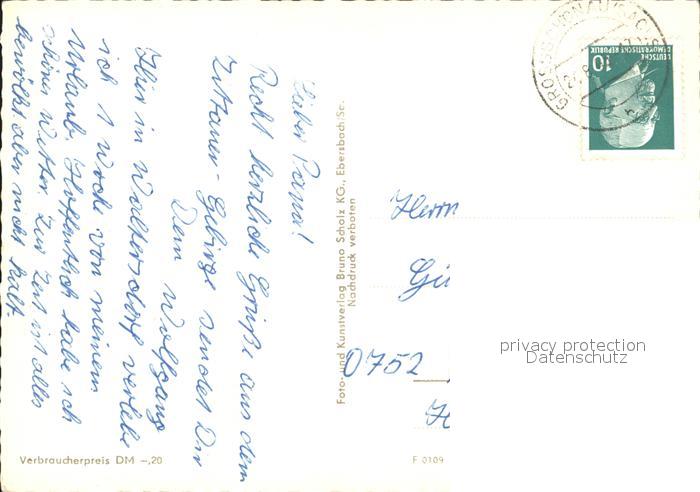 Lieber Papa!
Recht herzliche Grüße aus dem
Zittauer-Gebirge sendet Dir
Dein Wolfgang
Hier in Waltersdorf verlebe
ich 1 Woche von meinem
Urlaub. Hoffentlich habe ich
schönes Wetter. Zur Zeit ist alles
bewölkt aber nicht kalt.
Verbraucherpreis DM –,20
Foto- und Kunstverlag Bruno Scholz KG., Ebersbach/Sa.
Nachdruck verboten
F 0109
DEUTSCHE
DEMOKRATISCHE REPUBLIK
10
Herrn
Gü
0752
privacy protection
Datenschutz